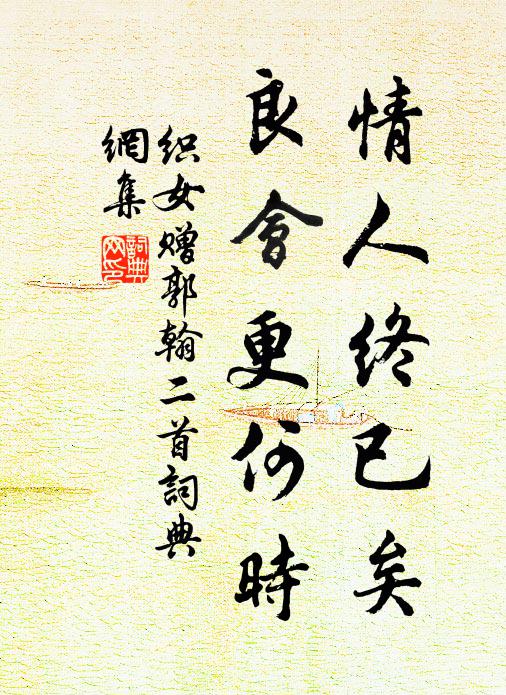 情人终已矣
良會更何時
织女赠郭翰二首詞典
網集
詞典
网印